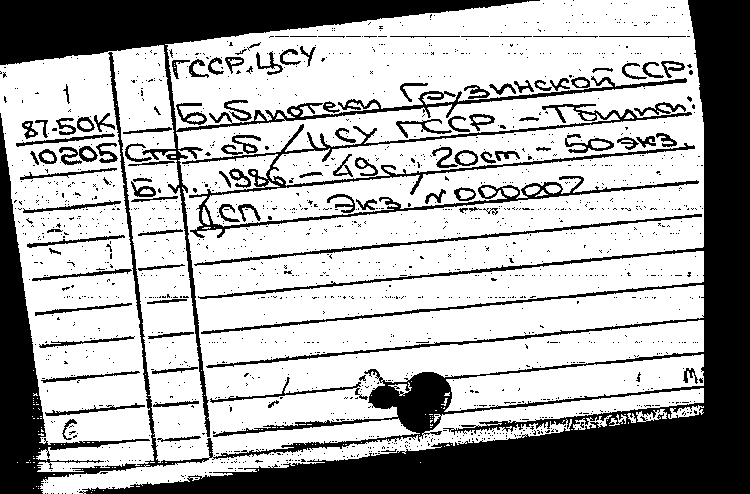 ГССР. ЦСУ.
87-50К Библиотеки Грузинской ССР:
10205 Стат. сб. / ЦСУ ГССР. – Тбилиси:
Б.и., 1986. – 49 с.; 20 см. – 50 экз.
ДСП. Экз. № 000007
6
М.